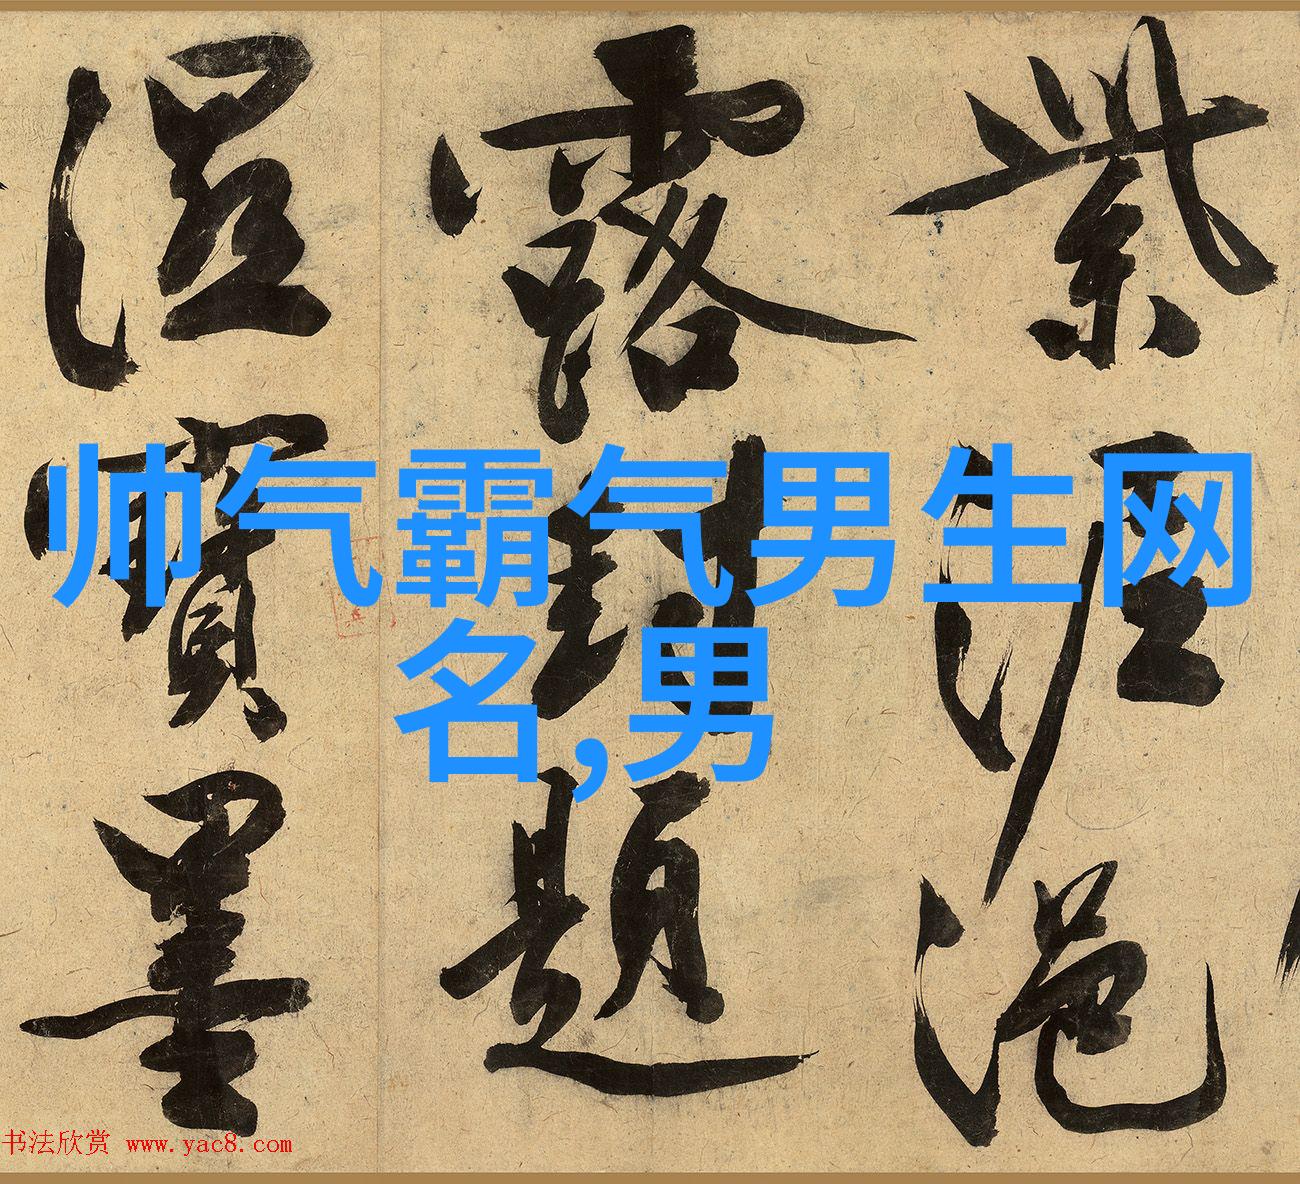 紫泥浥
露封題
濕寶墨
帅气霸气男生网
名,男
书法欣赏 www.yac8.com